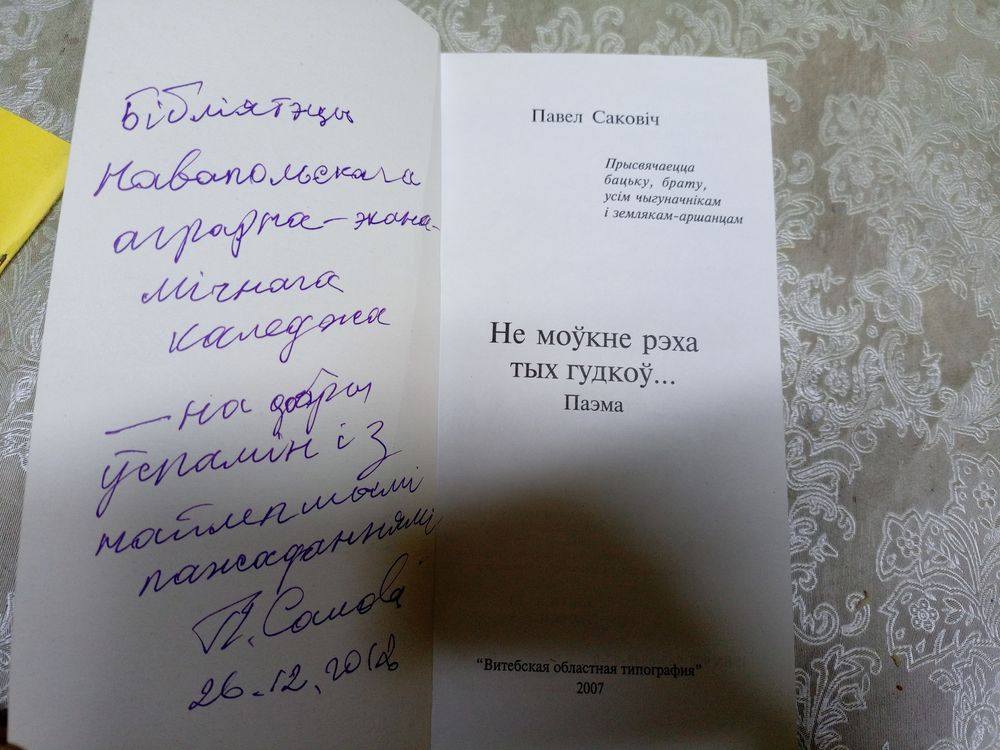 Бібліятэцы
Навапольскага
аграрна-экана-
мічнага
каледжа
— на добры
ўспамін і з
найлепшымі
пажаданнямі
П. Сакові
26.12.2012
Павел Саковіч
Прысвячаецца
бацьку, брату,
усім чыгуначнікам
і землякам-аршанцам
Не моўкне рэха
тых гудкоў...
Паэма
"Витебская областная типография"
2007